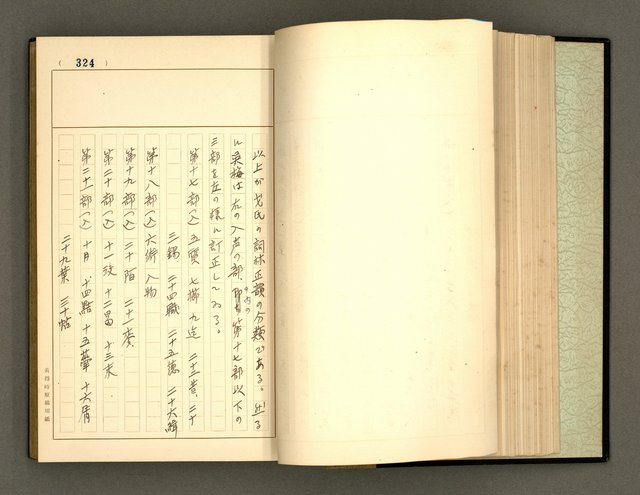 324
以上が戈氏の詞林正韻の分類である。近る
に吳梅は左の入声の部、即ち第十七部以下の
の内の
三部を左の様に訂正してゐる。
第十七部(入) 五質 七櫛 九迄 二十三昔 二十
三錫 二十四職 二十五徳 二十六緝
第十八部(入) 六術 八物
第十九部(入) 二十陌 二十一麥
第二十部(入) 十一沒 十二曷 十三末
第二十一部(入) 十月 十四黠 十五舝 十六屑
二十九葉 三十帖
黃得時原稿用紙